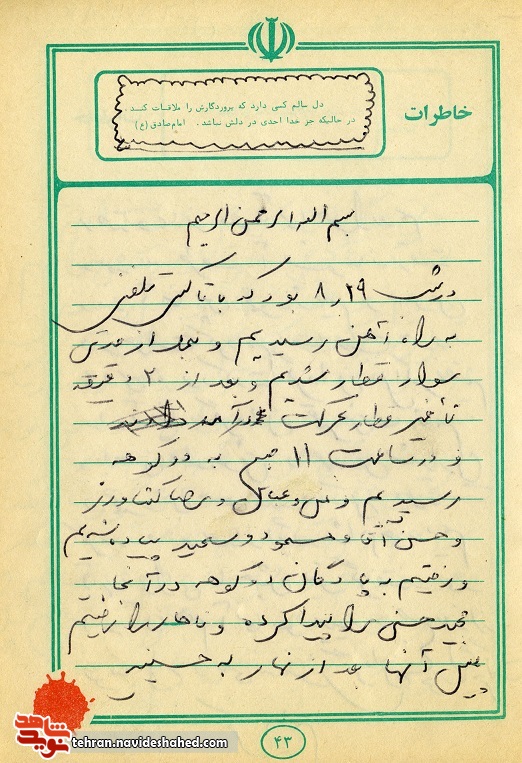 خاطرات
دل سالم کسی دارد که پروردگارش را ملاقات کند.
در حالیکه جز خدا احدی در دلش نباشد. امام صادق (ع)
بسم الله الرحمن الرحیم
در شب ۸٫۲۹ بود که با تاکسی تلفنی
به راه آهن رسیدیم و بعد از مدتی
سوار قطار شدیم و بعد از ۲۰ دقیقه
تأخیر قطار بحرکت درآمد
و در ساعت ۱۱ صبح به دوکوهه
رسیدیم و من و عباس و رضا کشاورز
و حسن آقا و مسعود و سعید پیاده شدیم
و رفتیم به پادگان دوکوهه در آنجا
مجید حسنی را پیدا کرده و ناهار را رفتیم
پیش آنها بعد از نهار به حسینیه
۴۳
نوید شاهد
tehran.navideshahed.com